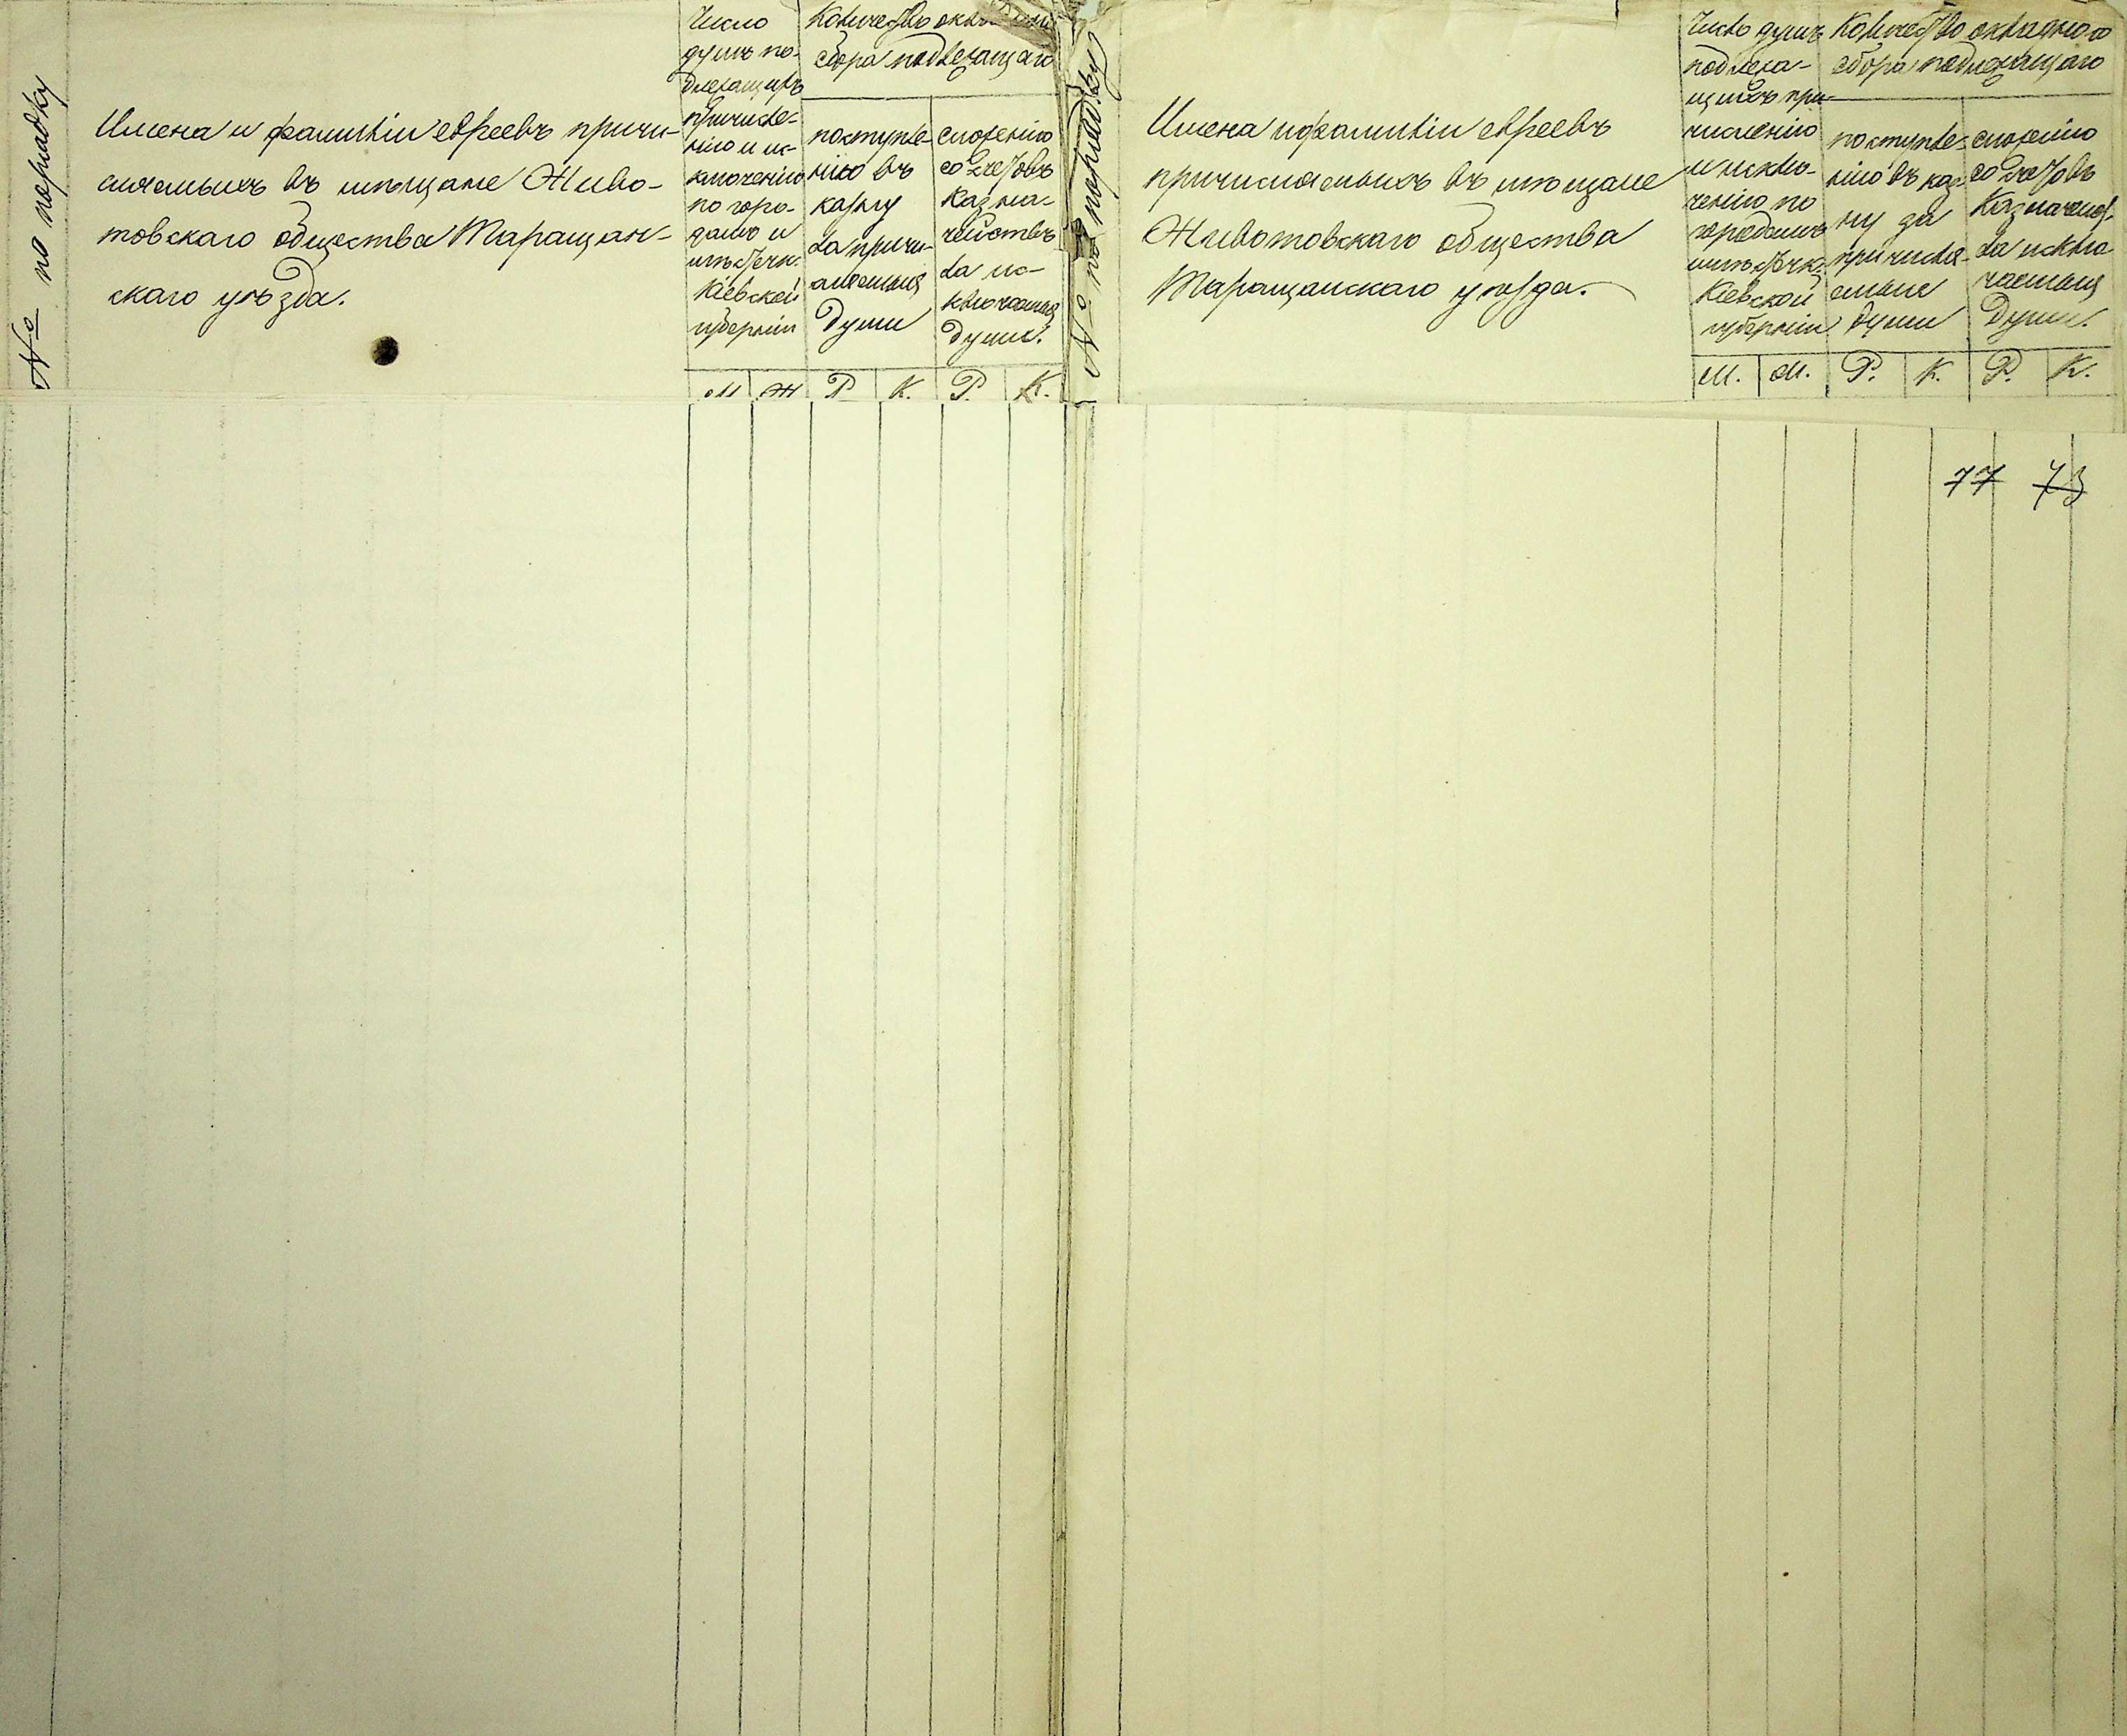 № по порядку
Имена и фамиліи евреевъ причи-
сляемыхъ въ мѣщане Живо-
товскаго общества Таращан-
скаго уѣзда.
Число
душъ по-
длежащихъ
причисле-
нію и ис-
ключенію
по горо-
дамъ и
мѣстечк.
Кіевской
губерніи
Количество
сбора подлежащаго
поступле-
нію въ
казну
за причи-
сляемыя
души
сложенію
со счетовъ
Казна-
чействъ
за ис-
ключаемыя
души.
М Ж Р К. Р. К.
№ по порядку
Имена и фамиліи евреевъ
причисляемыхъ въ мѣщане
Животовскаго общества
Таращанскаго уѣзда.
Число душъ
подлежа-
щихъ при-
численію
и исклю-
ченію по
городамъ
мѣстечк.
Кіевской
губерніи
Количество окладного
сбора подлежащаго
поступле-
нію въ каз-
ну за
причисля-
емыя
души
сложенію
со счетовъ
Казначейст.
за исклю
чаемыя
души.
М. М. Р. К. Р. К.
77 73